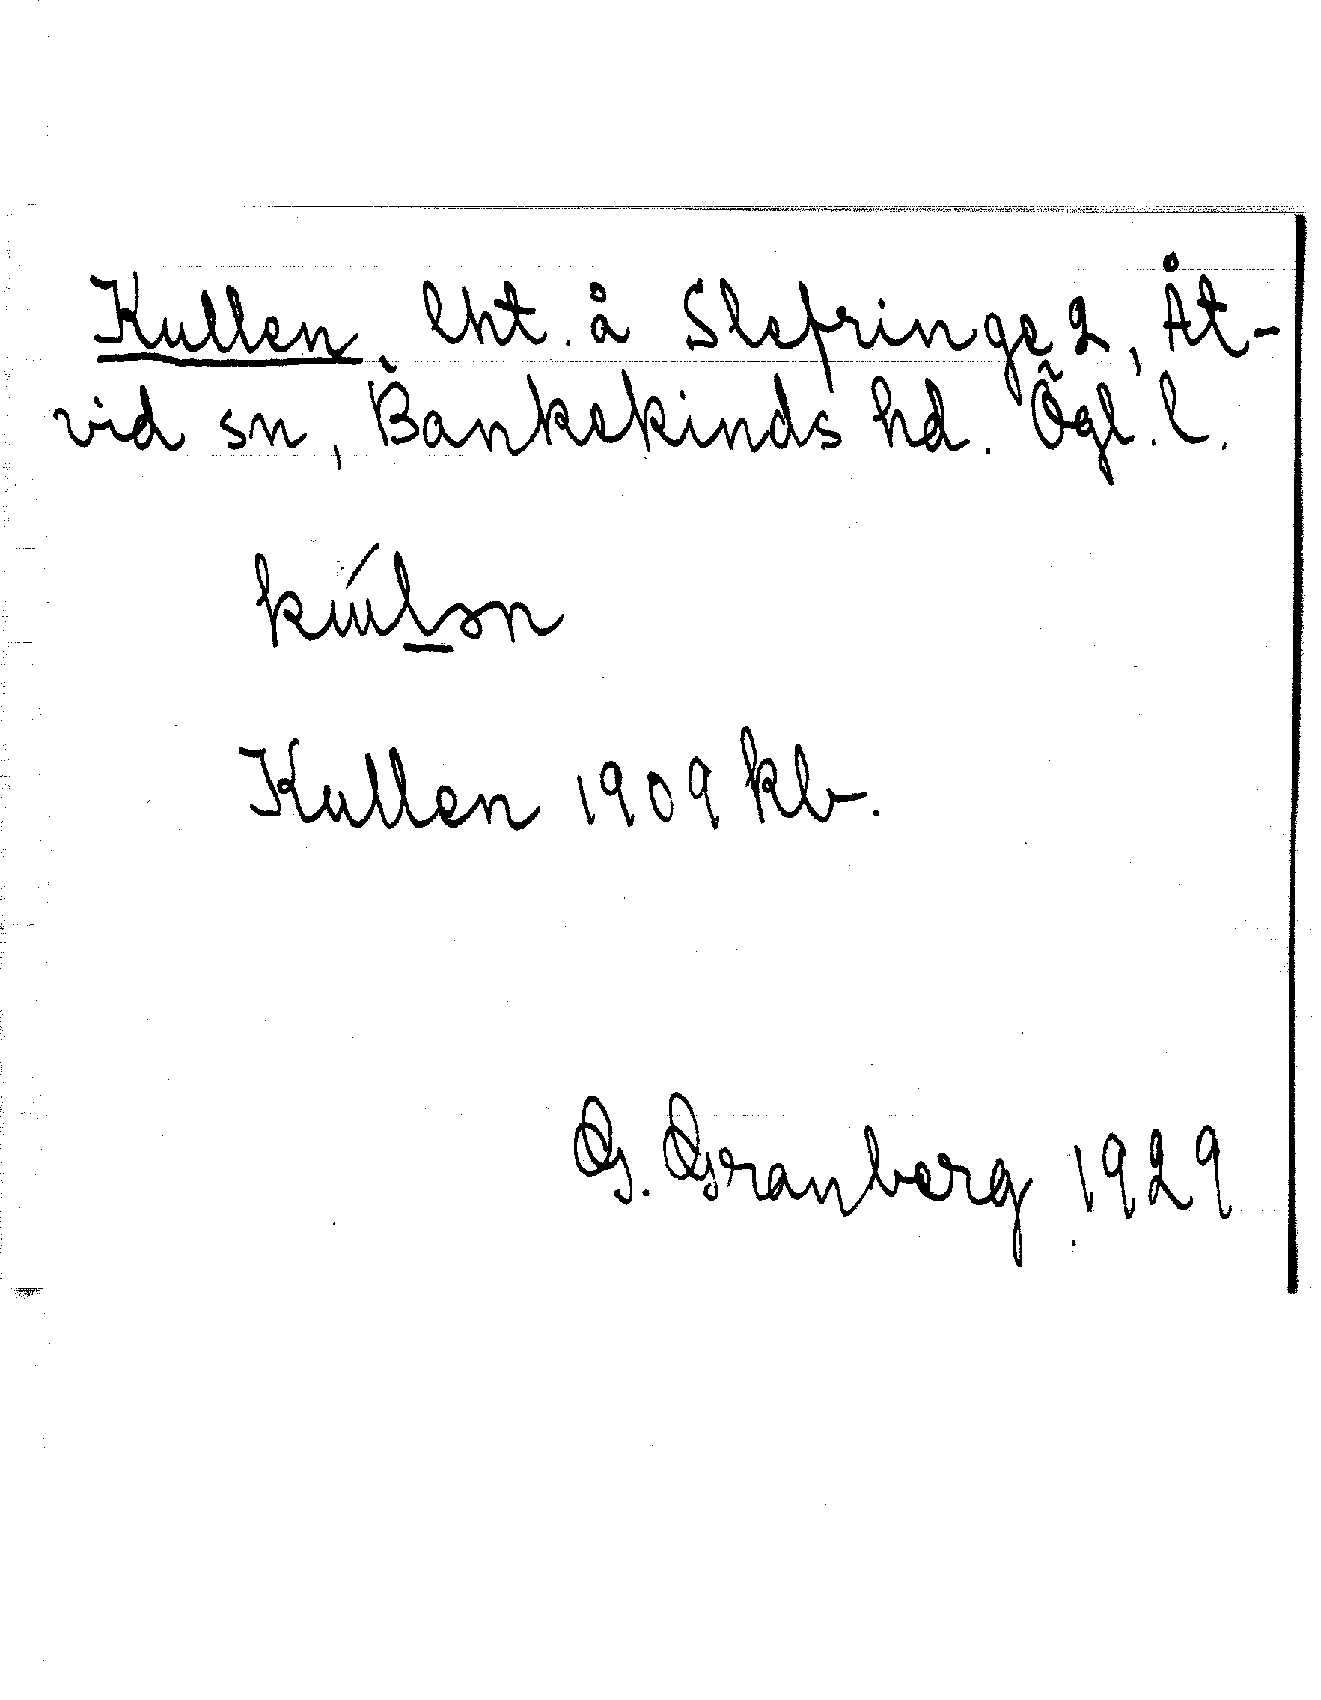 Kullen, lht. å Slefringe 2, Åt-
vid sn, Bankekinds hd. Ögl. l.
kúl̲ən
Kullen 1909 kb.
G. Granberg 1929